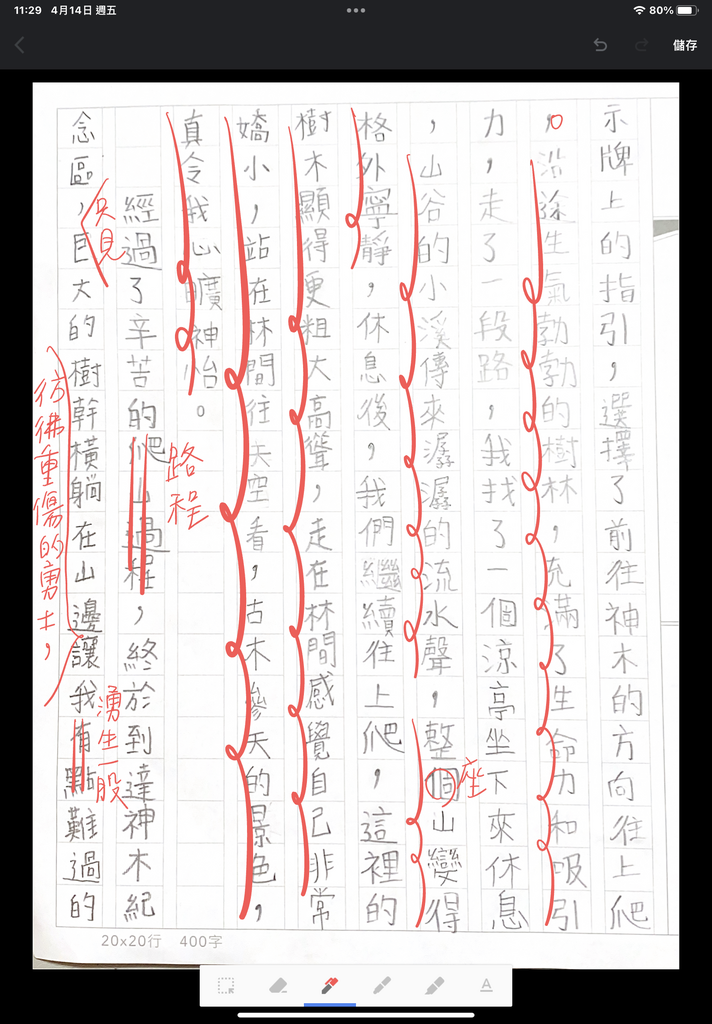 11:29 4月14日 週五
80%
儲存
示牌上的指引，選擇了前往神木的方向往上爬
，沿途生氣勃勃的樹林，充滿了生命力和吸引
力，走了一段路，我找了一個涼亭坐下來休息
，山谷的小溪傳來潺潺的流水聲，整個山變得
座
格外寧靜，休息後，我們繼續往上爬，這裡的
樹木顯得更粗大高聳，走在林間感覺自己非常
嬌小，站在林間往天空看，古木參天的景色，
真令我心曠神怡。
經過了辛苦的爬山過程，終於到達神木紀
路程
念區，巨大的樹幹橫躺在山邊讓我有點難過的
只見
湧生一股
彷彿重傷的勇士，
20x20行 400字
A